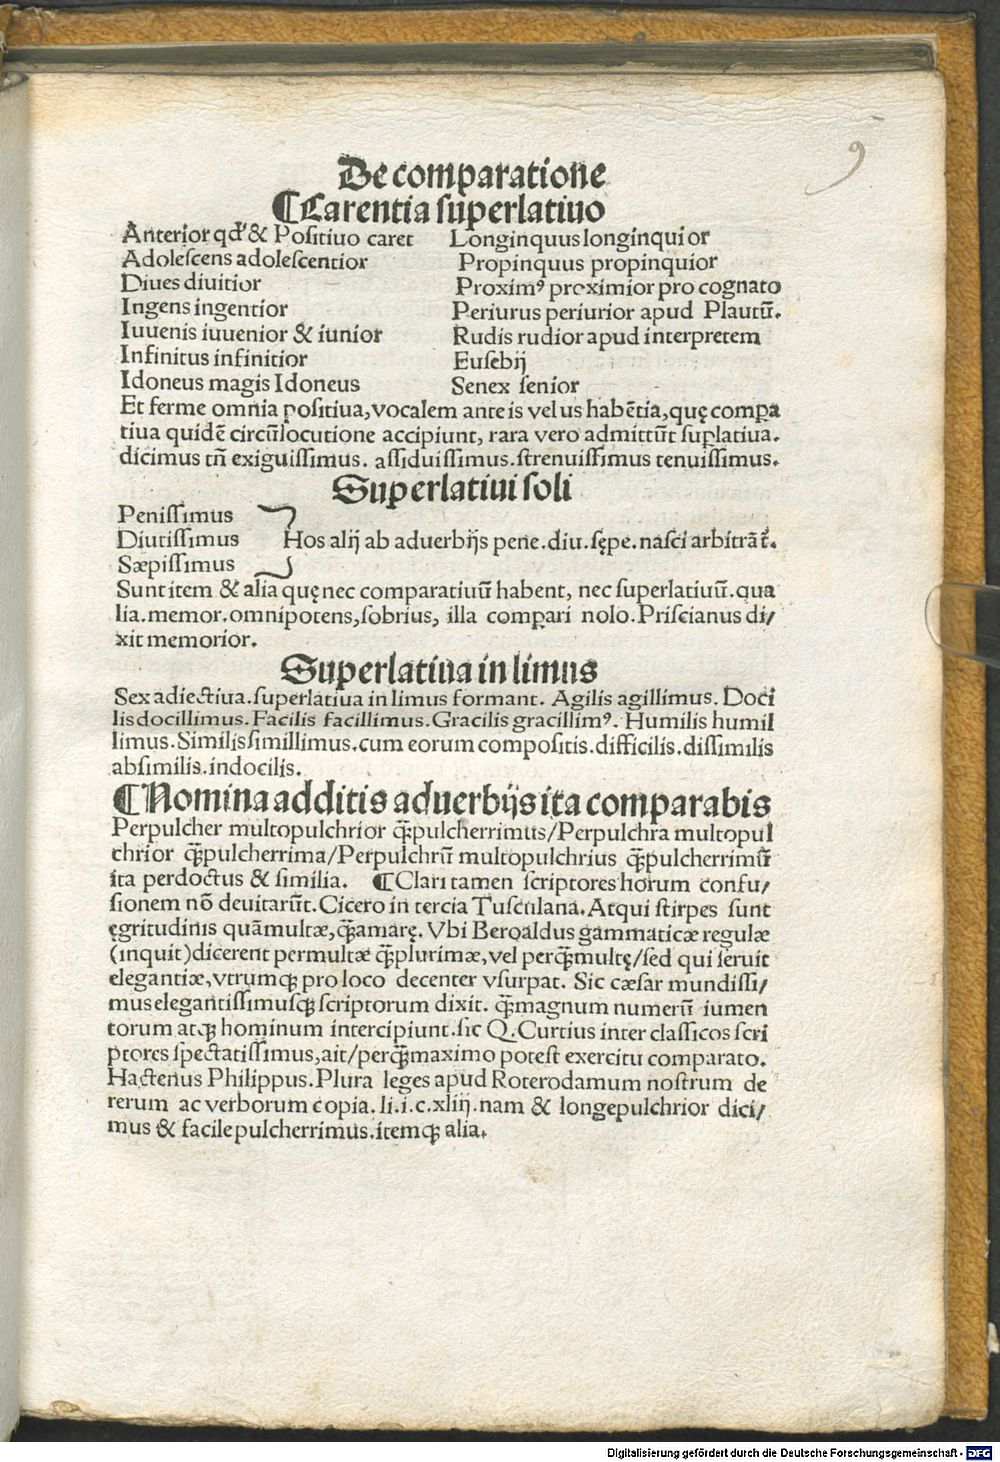 9
De comparatione
¶Carentia superlatiuo
Anterior qd' & Positiuo caret
Adolescens adolescentior
Diues diuitior
Ingens ingentior
Iuuenis iuuenior & iunior
Infinitus infinitior
Idoneus magis Idoneus
Longinquus longinquior
Propinquus propinquior
Proximꝰ proximior pro cognato
Periurus periurior apud Plautū.
Rudis rudior apud interpretem
Eusebij
Senex senior
Et ferme omnia positiua, vocalem ante is vel us habētia, quę compa
tiua quidē circūlocutione accipiunt, rara vero admittūt suꝑlatiua.
dicimus tñ exiguissimus. assiduissimus. strenuissimus tenuissimus.
Superlatiui soli
Penissimus
Diutissimus
Sæpissimus
Hos alij ab aduerbijs pene. diu. sępe. nasci arbitrāt̃.
Sunt item & alia quę nec comparatiuū habent, nec superlatiuū. qua
lia. memor. omnipotens, sobrius, illa compari nolo. Priscianus di/
xit memorior.
Superlatiua in limus
Sex adiectiua. superlatiua in limus formant. Agilis agillimus. Doci
lis docillimus. Facilis facillimus. Gracilis gracillimꝰ. Humilis humil
limus. Similis simillimus. cum eorum compositis. difficilis. dissimilis
absimilis. indocilis.
¶Nomina additis aduerbijs ita comparabis
Perpulcher multopulchrior q̃pulcherrimus/Perpulchra multopul
chrior q̃pulcherrima/Perpulchrū multopulchrius q̃pulcherrimū
ita perdoctus & similia. ¶Clari tamen scriptores horum confu/
sionem nō deuitarūt. Cicero in tercia Tusculana. Atqui stirpes sunt
ęgritudinis quāmultæ, q̃amarę. Vbi Beroaldus gammaticæ regulæ
(inquit) dicerent permultæ q̃plurimæ, vel perq̃multę/sed qui seruit
elegantiæ, vtrumqꝫ pro loco decenter vsurpat. Sic cæsar mundissi/
mus elegantissimusqꝫ scriptorum dixit. q̃magnum numerū iumen
torum atqꝫ hominum intercipiunt. sic Q. Curtius inter classicos scri
ptores spectatissimus, ait/perq̃maximo potest exercitu comparato.
Hactenus Philippus. Plura leges apud Roterodamum nostrum de
rerum ac verborum copia. li. i. c. xliij. nam & longepulchrior dici/
mus & facilepulcherrimus. itemqꝫ alia.
Digitalisierung gefördert durch die Deutsche Forschungsgemeinschaft - DFG